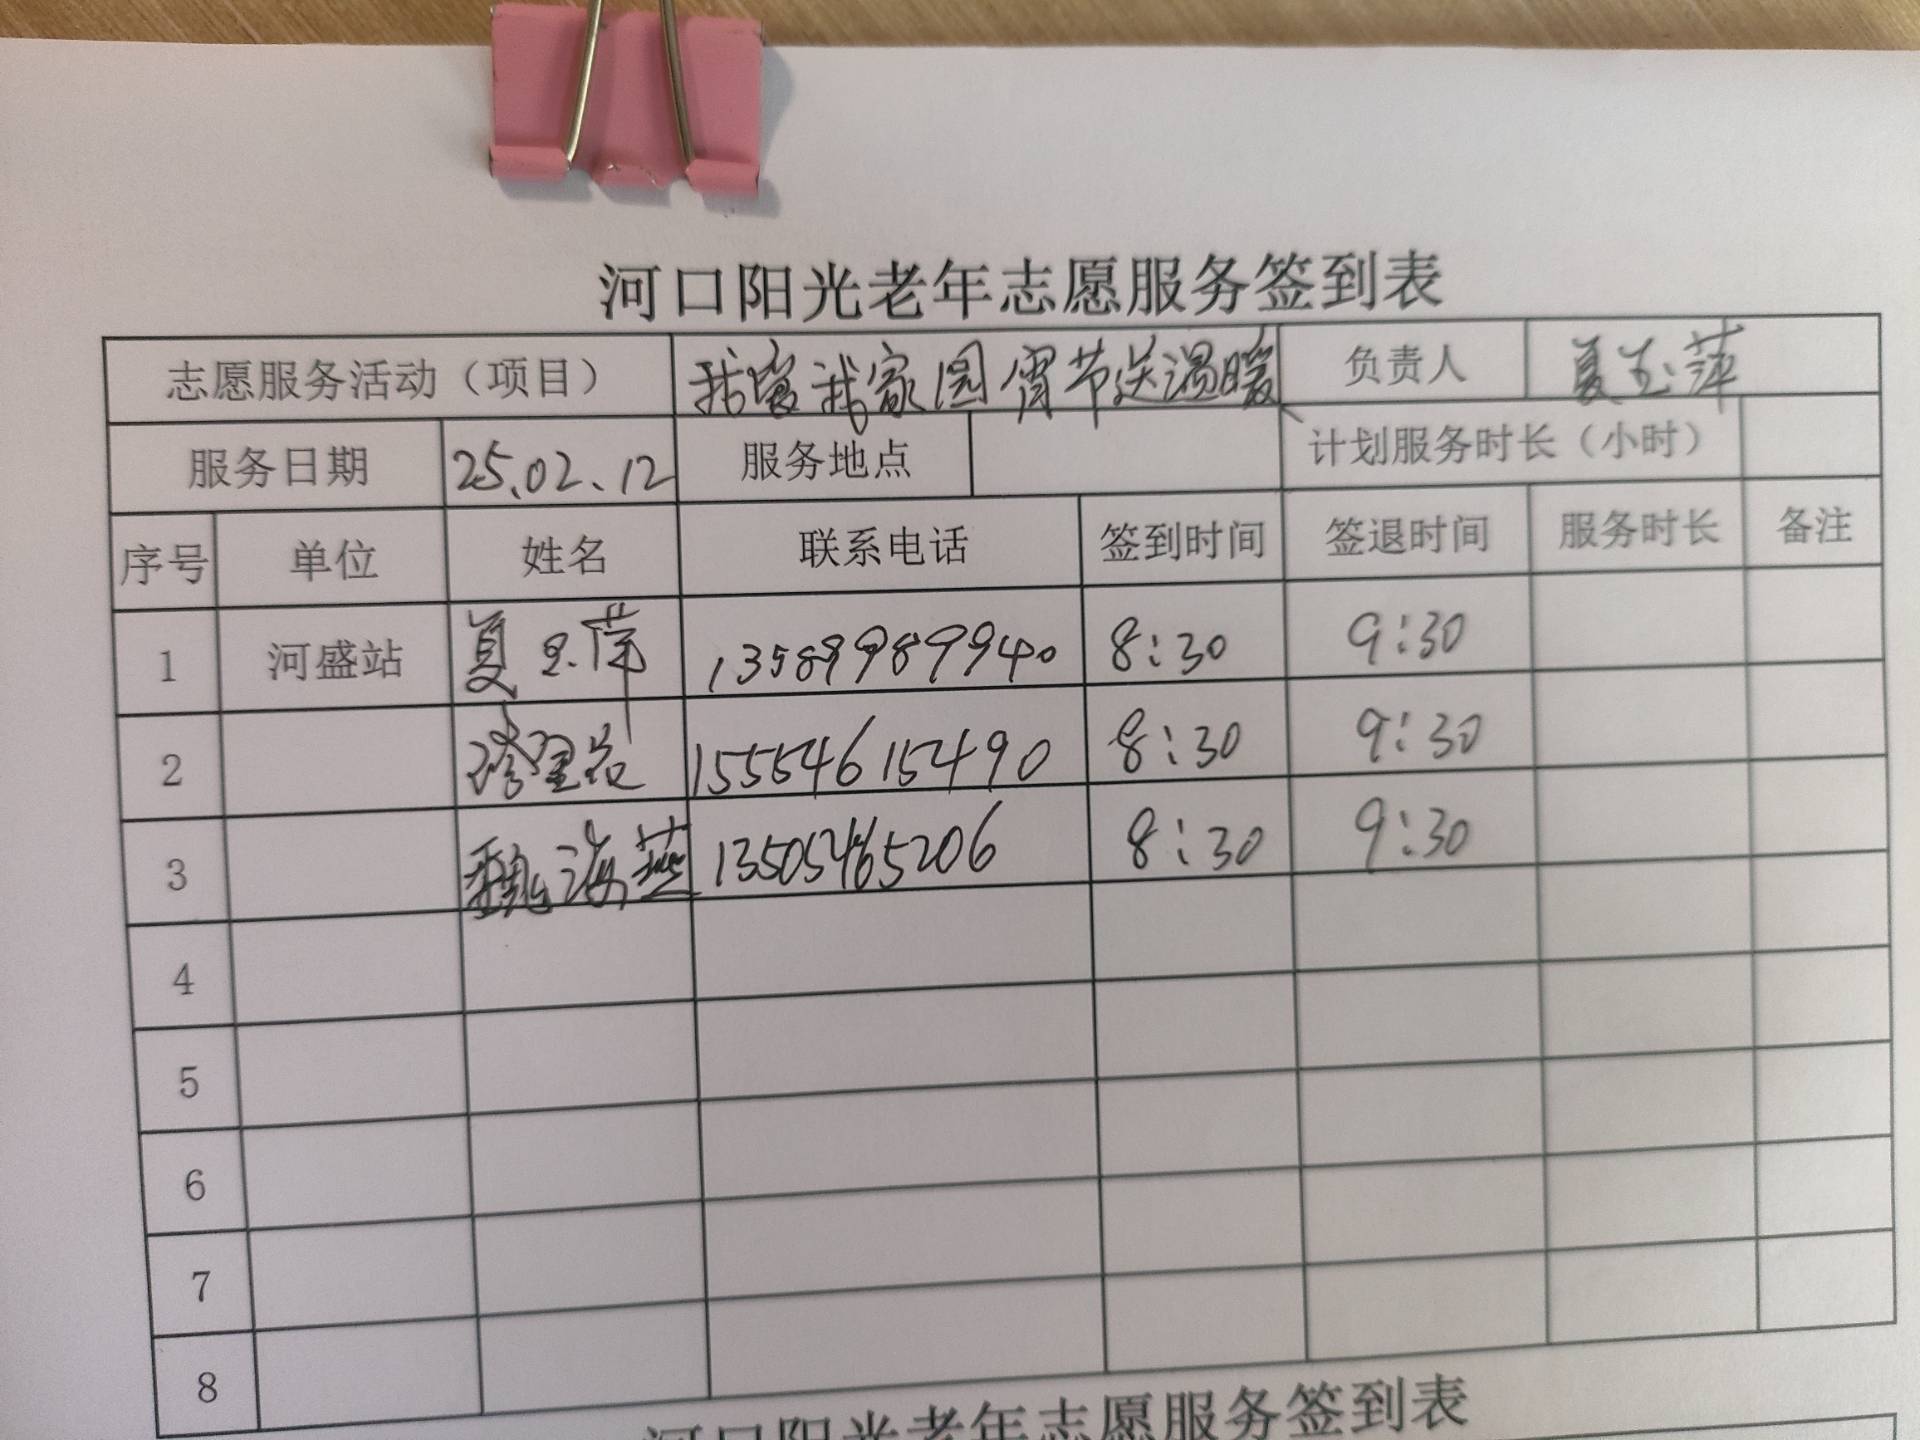 河口阳光老年志愿服务签到表
志愿服务活动（项目） 我爱我家园 宵节送温暖 负责人 夏玉萍
服务日期 25.02.12 服务地点 计划服务时长（小时）
序号 单位 姓名 联系电话 签到时间 签退时间 服务时长 备注
1 河盛站 夏玉萍 13589989940 8:30 9:30
2 15554615490 8:30 9:30
3 魏海燕 13505465206 8:30 9:30
4
5
6
7
8
河口阳光老年志愿服务签到表